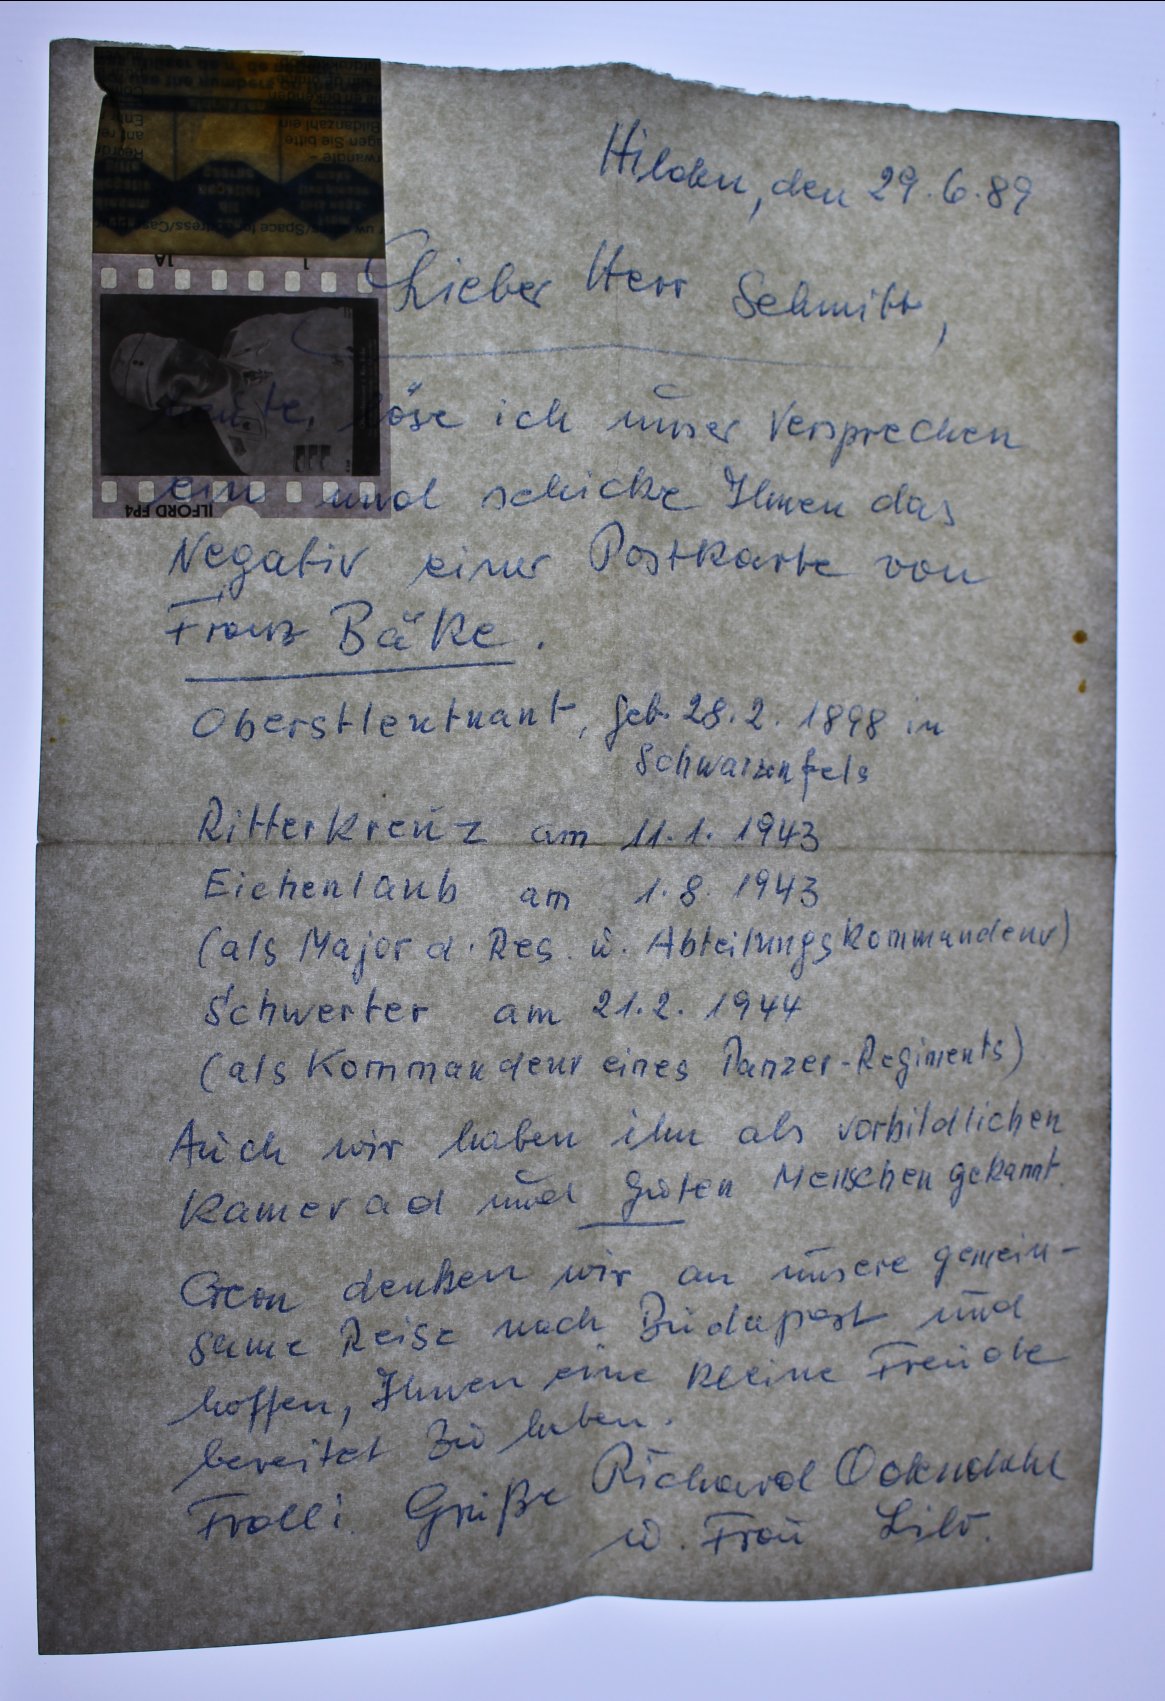 Hilden, den 29.6.89
Lieber Herr Schmitt,
heute, löse ich unser Versprechen
ein und schicke Ihnen das
Negativ einer Postkarte von
Franz Bäke.
Oberstleutnant, geb. 28.2.1898 in
Schwarzenfels
Ritterkreuz am 11.1.1943
Eichenlaub am 1.8.1943
(als Major d. Res. u. Abteilungskommandeur)
Schwerter am 21.2.1944
(als Kommandeur eines Panzer-Regiments)
Auch wir haben ihn als vorbildlichen
Kamerad und guten Menschen gekannt.
Gern denken wir an unsere gemein-
same Reise nach Budapest und
hoffen, Ihnen eine kleine Freude
bereitet zu haben.
Frdl. Grüße Richard
u. Frau
ILFORD FP4
1A
1